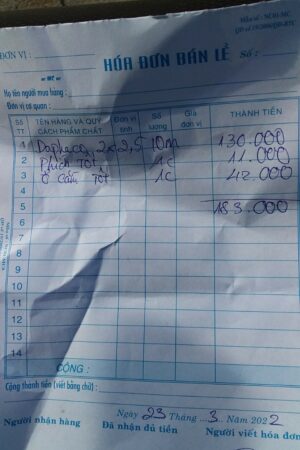 Mẫu số : NĐBL-MC
QĐ số 15/2006/QĐ-BTC
ĐƠN VỊ :
HÓA ĐƠN BÁN LẺ Số :
Họ tên người mua hàng :
Đơn vị cơ quan :
Số TT TÊN HÀNG VÀ QUY CÁCH PHẨM CHẤT Đơn vị tính Số lượng Giá đơn vị THÀNH TIỀN
1 Daphaco 2x2,5 10m 130.000
2 Phích Tốt 1c 11.000
3 Ổ Cắm Tốt 1c 42.000
4
5 183.000
6
7
8
9
10
11
12
13
14
CỘNG :
Cộng thành tiền (viết bằng chữ) :
Ngày 23 Tháng 3 Năm 2022
Người nhận hàng Đã nhận đủ tiền Người viết hóa đơn